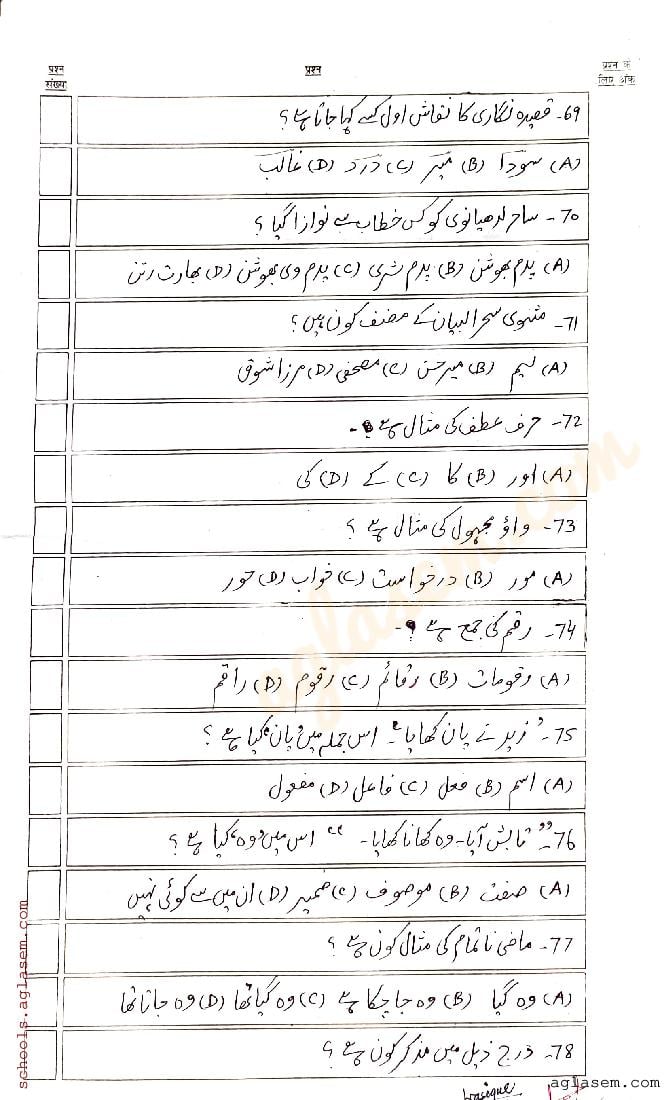 प्रश्न संख्या
प्रश्न
प्रश्न के लिए अंक
69- قصیدہ نگاری کا نقاش اول کسے کہا جاتا ہے؟
(A) سودا (B) میر (C) درد (D) غالب
70- ساحر لدھیانوی کو کس خطاب سے نوازا گیا؟
(A) پدم بھوشن (B) پدم شری (C) پدم وی بھوشن (D) بھارت رتن
71- مثنوی سحرالبیان کے مصنف کون ہیں؟
(A) نسیم (B) میر حسن (C) مصحفی (D) مرزا شوق
72- حرف عطف کی مثال ہے-
(A) اور (B) کا (C) کے (D) کی
73- واؤ مجہول کی مثال ہے؟
(A) مور (B) درخواست (C) خواب (D) حور
74- رقم کی جمع ہے؟-
(A) رقومات (B) رقائم (C) رقوم (D) راقم
75- 'زید نے پان کھایا'- اس جملہ میں 'پان' کیا ہے؟
(A) اسم (B) فعل (C) فاعل (D) مفعول
76- "تابش آیا- وہ کھانا کھایا-" اس میں 'وہ' کیا ہے؟
(A) صفت (B) موصوف (C) ضمیر (D) ان میں سے کوئی نہیں
77- ماضی ناتمام کی مثال کون ہے؟
(A) وہ گیا (B) وہ جا چکا ہے (C) وہ گیا تھا (D) وہ جاتا تھا
78- درج ذیل میں مذکر کون ہے؟
aglasem.com
schools.aglasem.com
aglasem.com